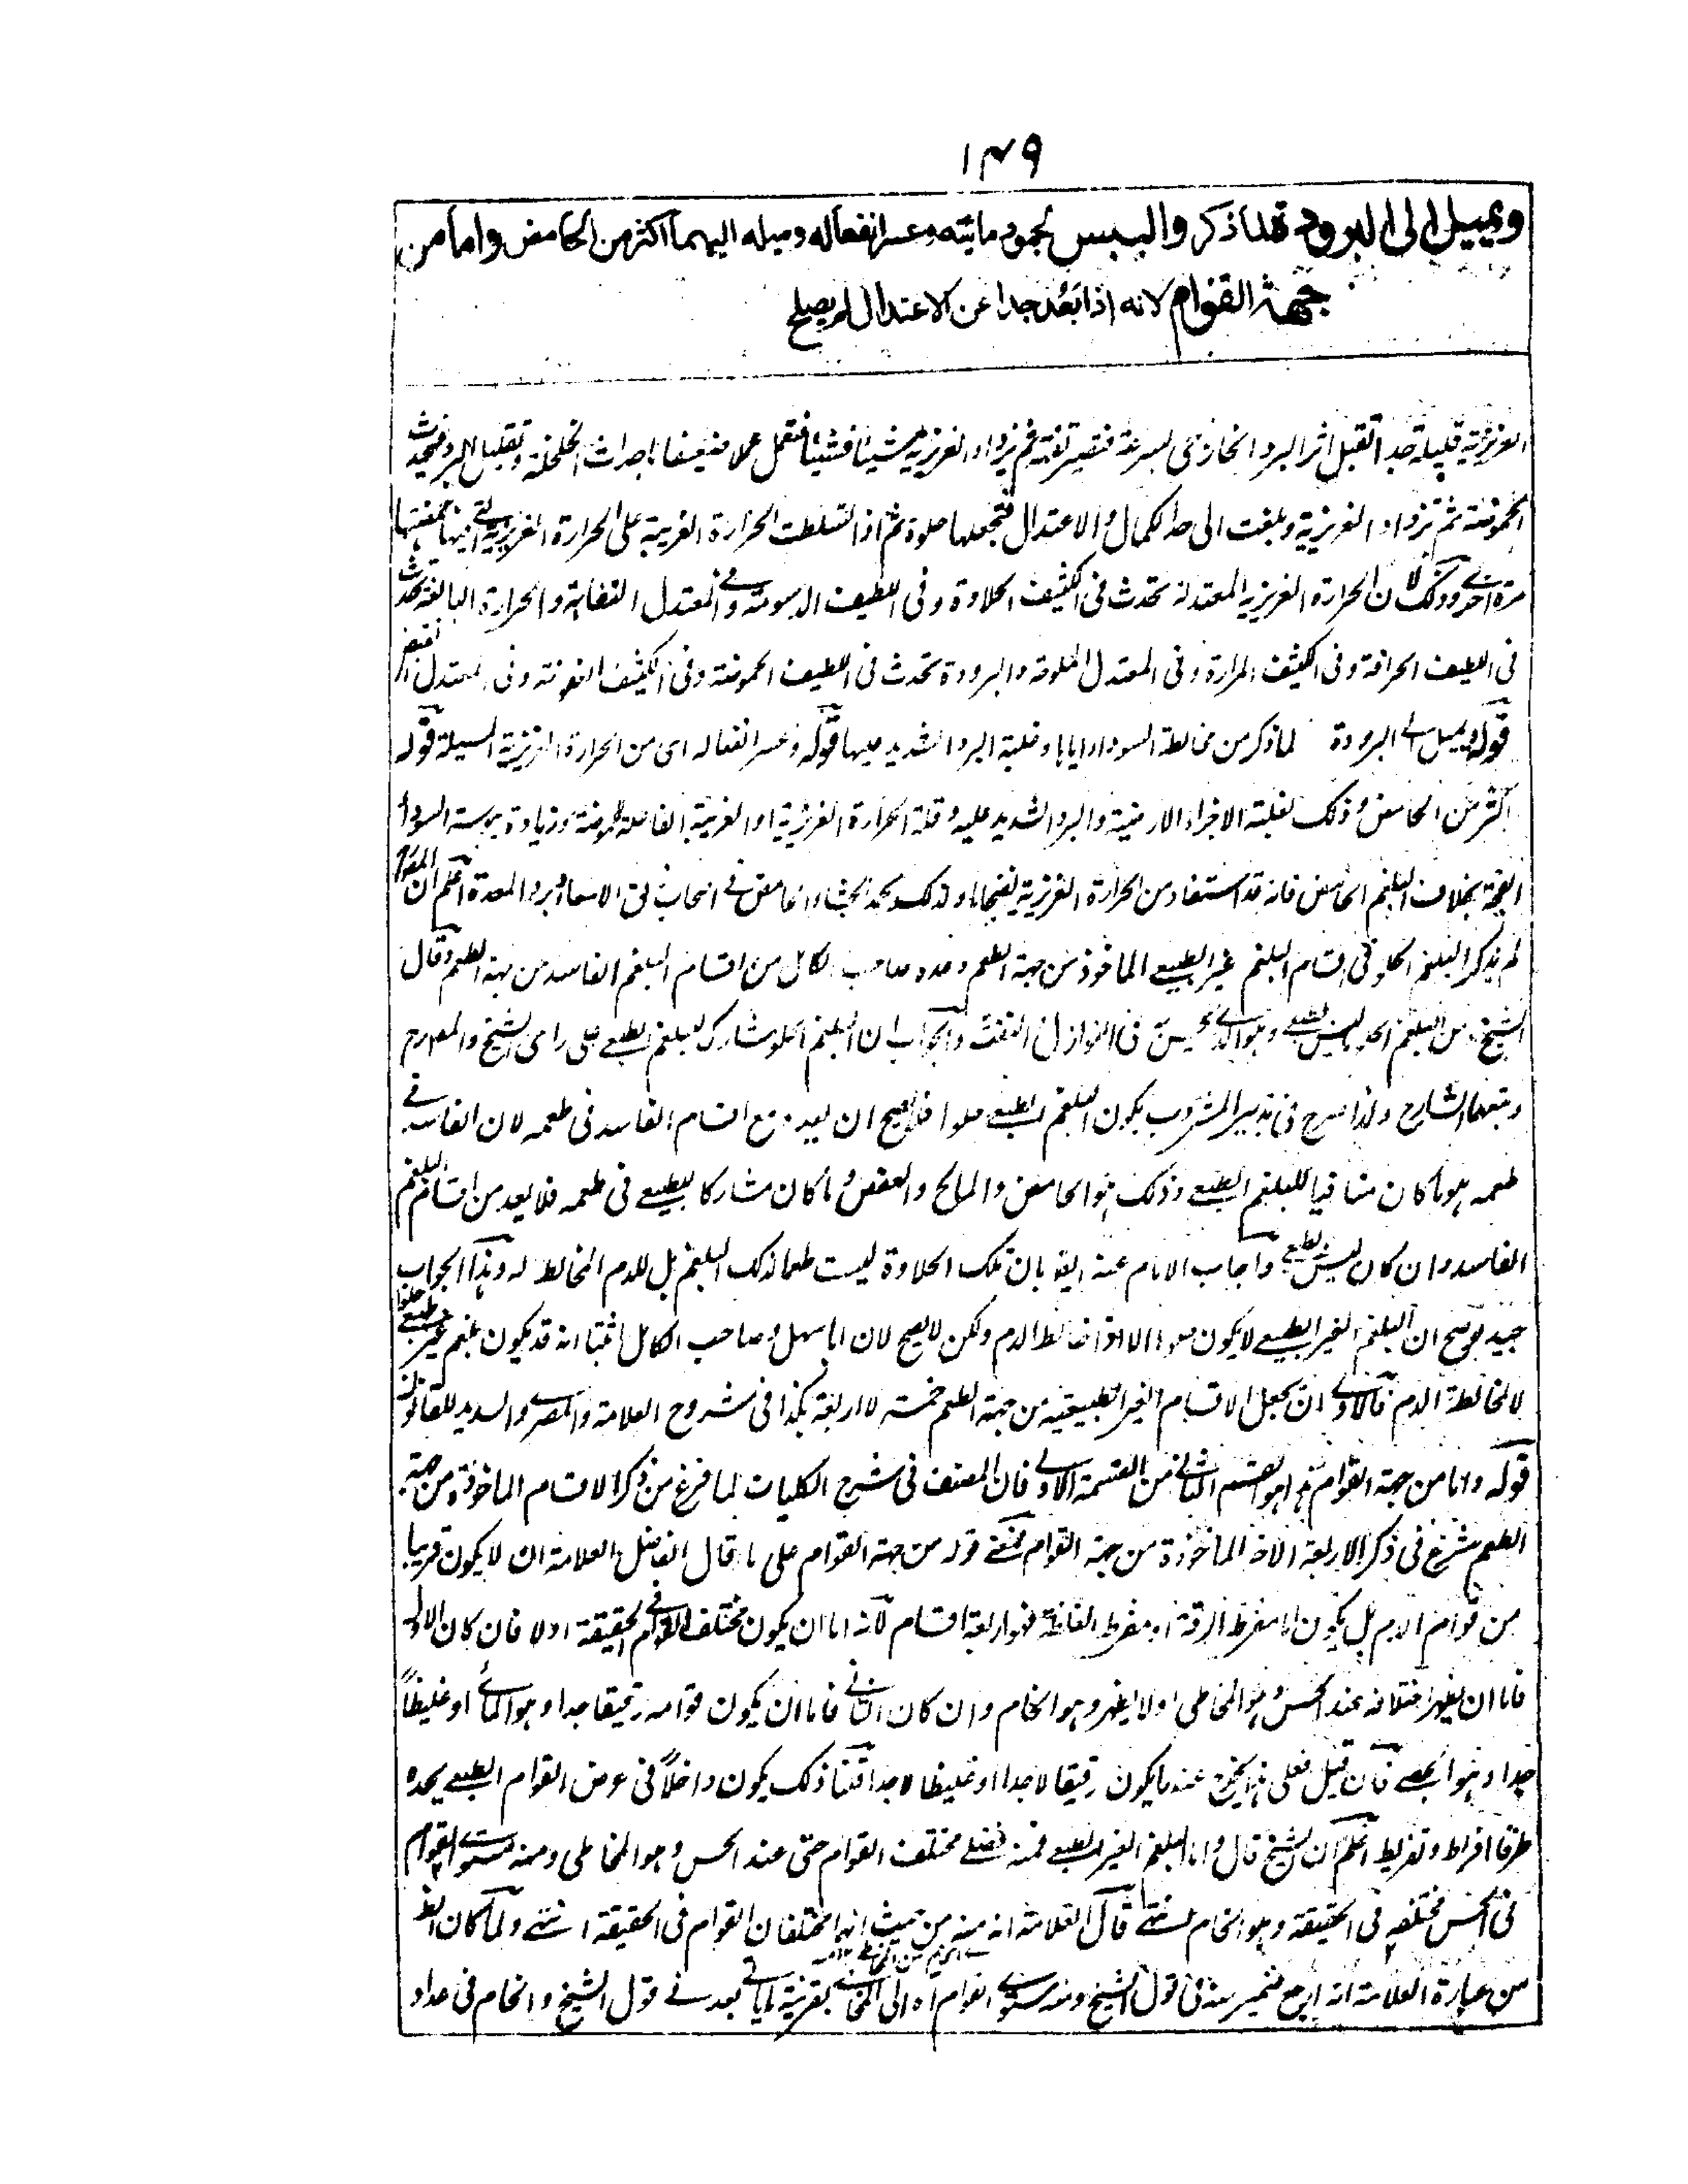 ١٤٩
ويميل الى البرودة لما ذكر واليبس لجمود مائيته وعسر انفعاله وميله اليهما اكثر من الحامض واما من
جهة القوام لانه اذا بعد جدا عن الاعتدال لم يصلح
الغريزية قليلة جدا تقبل اثر البرد الخارجى بسرعة فتصير تفهة ثم يزداد الغريزية شيئا فشيئا فتعمل عملا ضعيفا باحداث الخلخلة وتقليل البرد فتحدث
الحموضة ثم تزداد الغريزية وبلغت الى حد الكمال والاعتدال فتجعلها حلوة ثم اذا تسلطت الحرارة الغريبة على الحرارة الغريزية التى
مرة اخرى وذلك لان الحرارة الغريزية المعتدلة تحدث فى الكثيف الحلاوة وفى اللطيف الدسومة وفى المعتدل التفاهة والحرارة البالغة تحدث
فى اللطيف الحرافة وفى الكثيف المرارة وفى المعتدل الملوحة والبرودة تحدث فى اللطيف الحموضة وفى الكثيف العفوصة وفى المعتدل القبض
قوله ويميل الى البرودة لما ذكر من مخالطة السوداء اياها وغلبة البرد الشديد عليها قوله وعسر انفعاله اى من الحرارة الغريزية المسيلة قوله
اكثر من الحامض وذلك لغلبة الاجزاء الارضية والبرد الشديد عليه وقلة الحرارة الغريزية او الغريبة الفاعلة للحموضة وزيادة يبوسة السوداء
الفجة بخلاف البلغم الحامض فانه قد استفاد من الحرارة الغريزية نضجا ما ولذلك يحدث الجشاء الحامض فى اصحاب زلق الامعاء وبرد المعدة اعلم ان المص
لم يذكر البلغم الحلو فى اقسام البلغم غير الطبيعى الماخوذ من جهة الطعم وعده صاحب الكامل من اقسام البلغم الفاسد من جهة الطعم وقال
الشيخ من البلغم الحلو ما ليس بطبيعى وهو الذى يحس فى النوازل فى النفث والجواب ان البلغم الحلو مشارك للبلغم الطبيعى على راى الشيخ والمص
وتبعهما الشارح ولذا صرح فى تدبير المشروب بكون البلغم الطبيعى حلوا فلا يصح ان يعد مع اقسام الفاسد فى طعمه لان الفاسد فى
طعمه هو ما كان منافيا للبلغم الطبيعى وذلك هو الحامض والمالح والعفص وما كان مشاركا للطبيعى فى طعمه فلا يعد من اقسام البلغم
الفاسد وان كان ليس بطبيعى واجاب الامام عنه بان تلك الحلاوة ليست طعما لذلك البلغم بل للدم المخالط له وهذا الجواب
جيد لو صح ان البلغم الغير الطبيعى لا يكون حلوا الا اذا خالط الدم ولكن لا يصح لان ابا سهل وصاحب الكامل اثبتا انه قد يكون بلغم غير طبيعى حلوا
لا لمخالطة الدم فالاولى ان يجعل الاقسام الغير الطبيعية من جهة الطعم خمسة لا اربعة هكذا فى شروح العلامة والمصرى والسديد للقانون
قوله واما من جهة القوام هذا هو القسم الثانى من القسمة الاولى فان المصنف فى شرح الكليات لما فرغ من ذكر الاقسام الماخوذة من جهة
الطعم شرع فى ذكر الاربعة الاخر الماخوذة من جهة القوام فمعنى قوله من جهة القوام على ما قال الفاضل العلامة ان لا يكون قريبا
من قوام الدم بل يكون اما مفرط الرقة او مفرط الغلظة فهو اربعة اقسام لانه اما ان يكون مختلف القوام فى الحقيقة او لا فان كان الاول
فاما ان يظهر اختلافه عند الحس وهو المخاطى او لا يظهر وهو الخام وان كان الثانى فاما ان يكون قوامه رقيقا جدا وهو المائى او غليظاً
جدا وهو الجصى فان قيل فعلى هذا يخرج عنه ما يكون رقيقا لا جدا او غليظا لا جدا قلنا ذلك يكون داخلاً فى عرض القوام الطبيعى يحده
طرفا افراط وتفريط اعلم ان الشيخ قال واما البلغم الغير الطبيعى فمنه فضلى مختلف القوام حتى عند الحس وهو المخاطى ومنه مستوى القوام
فى الحس مختلفه فى الحقيقة وهو الخام انتهى قال العلامة انه منه من حيث انهما مختلفان القوام فى الحقيقة انتهى ولما كان الظ
من عبارة العلامة انه ارجع ضمير منه فى قول الشيخ ومنه مستوى القوام اه الى المخاطى بقرينة ما ياتى بعد فى قول الشيخ والخام فى عداد